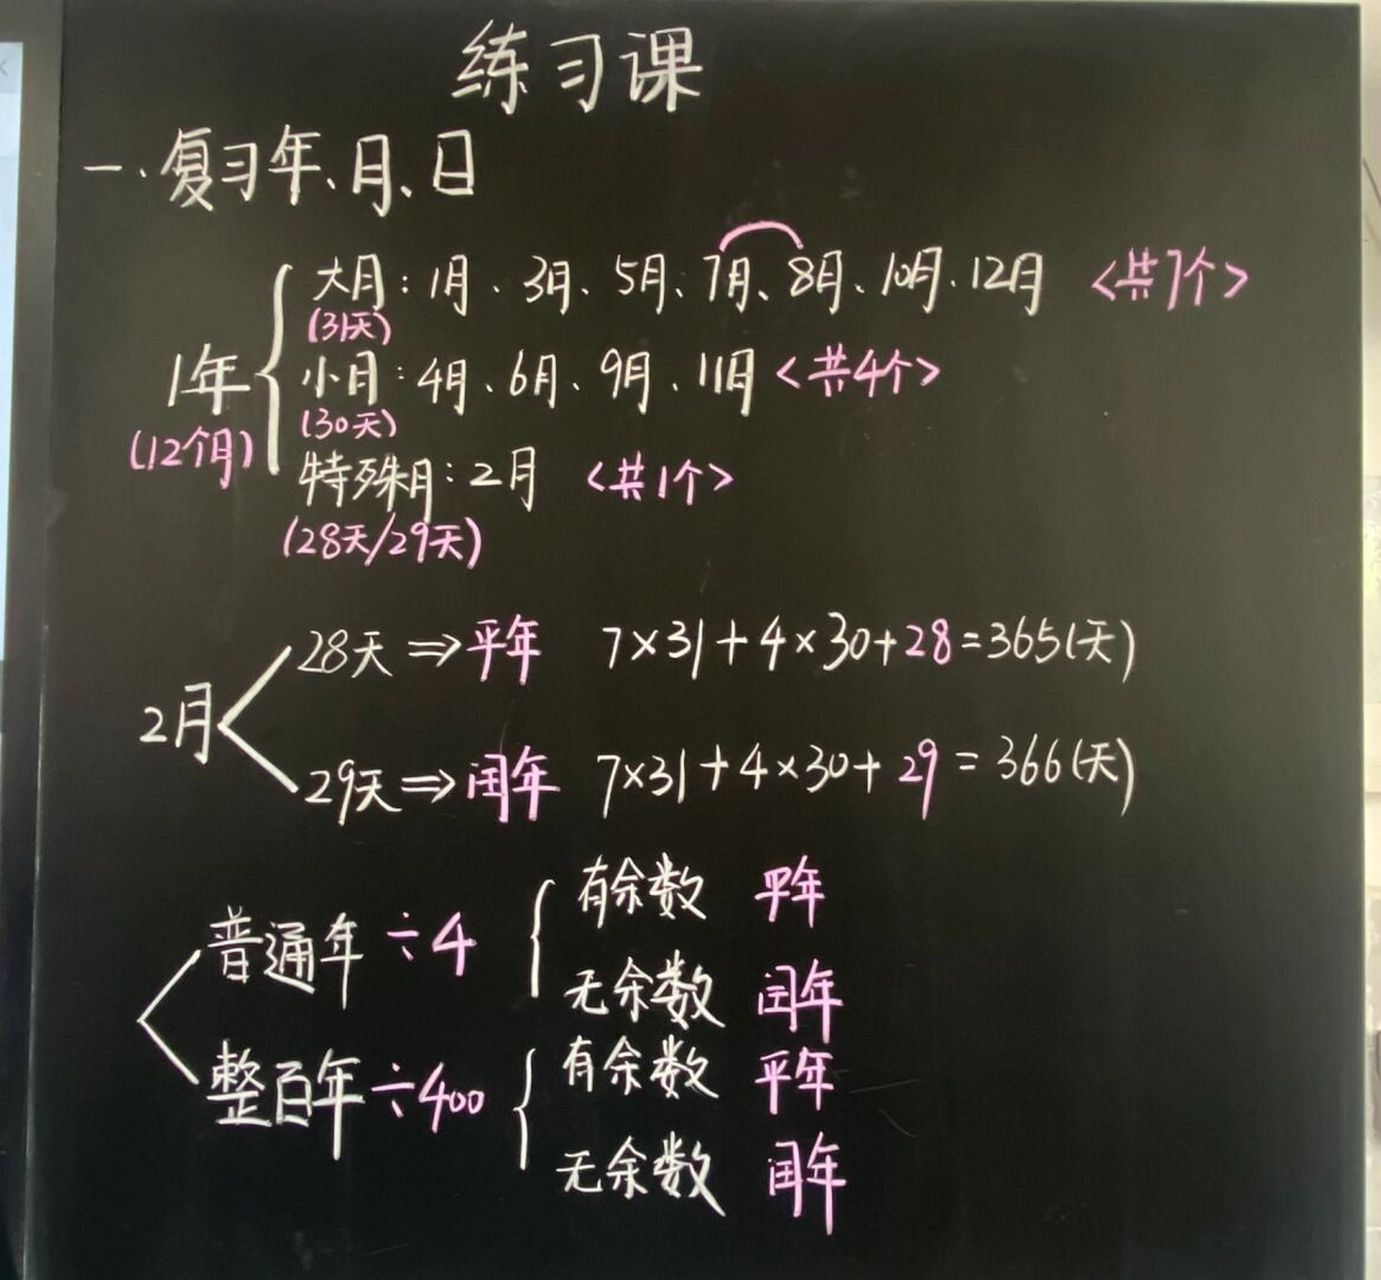 练习课
一.复习年、月、日
大月:1月、3月、5月、7月、8月、10月、12月 <共7个>
(31天)
1年 小月:4月、6月、9月、11月 <共4个>
(30天)
(12个月)
特殊月:2月 <共1个>
(28天/29天)
28天⇒平年 7×31+4×30+28=365(天)
2月
29天⇒闰年 7×31+4×30+29=366(天)
有余数 平年
普通年÷4
无余数 闰年
有余数 平年
整百年÷400
无余数 闰年